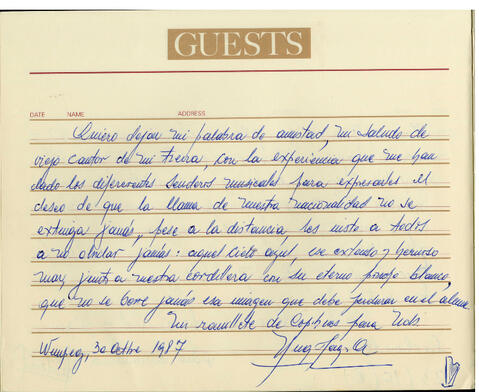 GUESTS
DATE NAME ADDRESS
Quiero dejar mi palabra de amistad, mi saludo de
viejo cantor de mi tierra, con la experiencia que me han
dado los diferentes senderos musicales para expresarles el
deseo de que la llama de nuestra nacionalidad no se
extinga jamás, pese a la distancia, les insto a todos
a no olvidar jamás: aquel cielo azul, ese extenso y hermoso
mar, junto a nuestra cordillera con su eterno poncho blanco,
que no se borre jamás esa imagen que debe perdurar en el alma.
Un ramillete de Copihues para Uds.
Winnipeg, 30 Octbre 1987